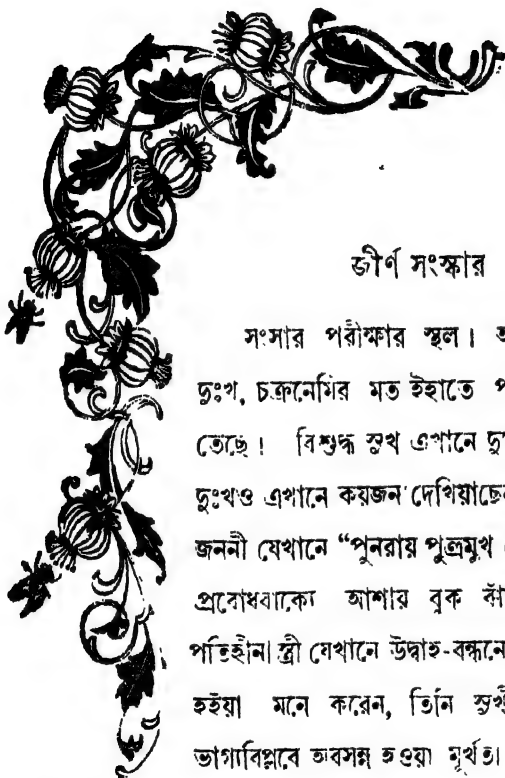 জীর্ণ সংস্কার
সংসার পরীক্ষার স্থল।
দুঃখ, চক্রনেমির মত ইহাতে প
তেছে। বিশুদ্ধ সুখ এখানে দু
দুঃখও এখানে কয়জন দেখিয়াছে
জননী যেখানে “পুনরায় পুত্রমুখ
প্রবোধবাক্যে আশায় বুক বাঁ
পতিহীনা স্ত্রী যেখানে উদ্বাহ-বন্ধনে
হইয়া মনে করেন, তিনি সুখী
ভাগ্যবিপ্লবে অবসন্ন হওয়া মূর্খতা।